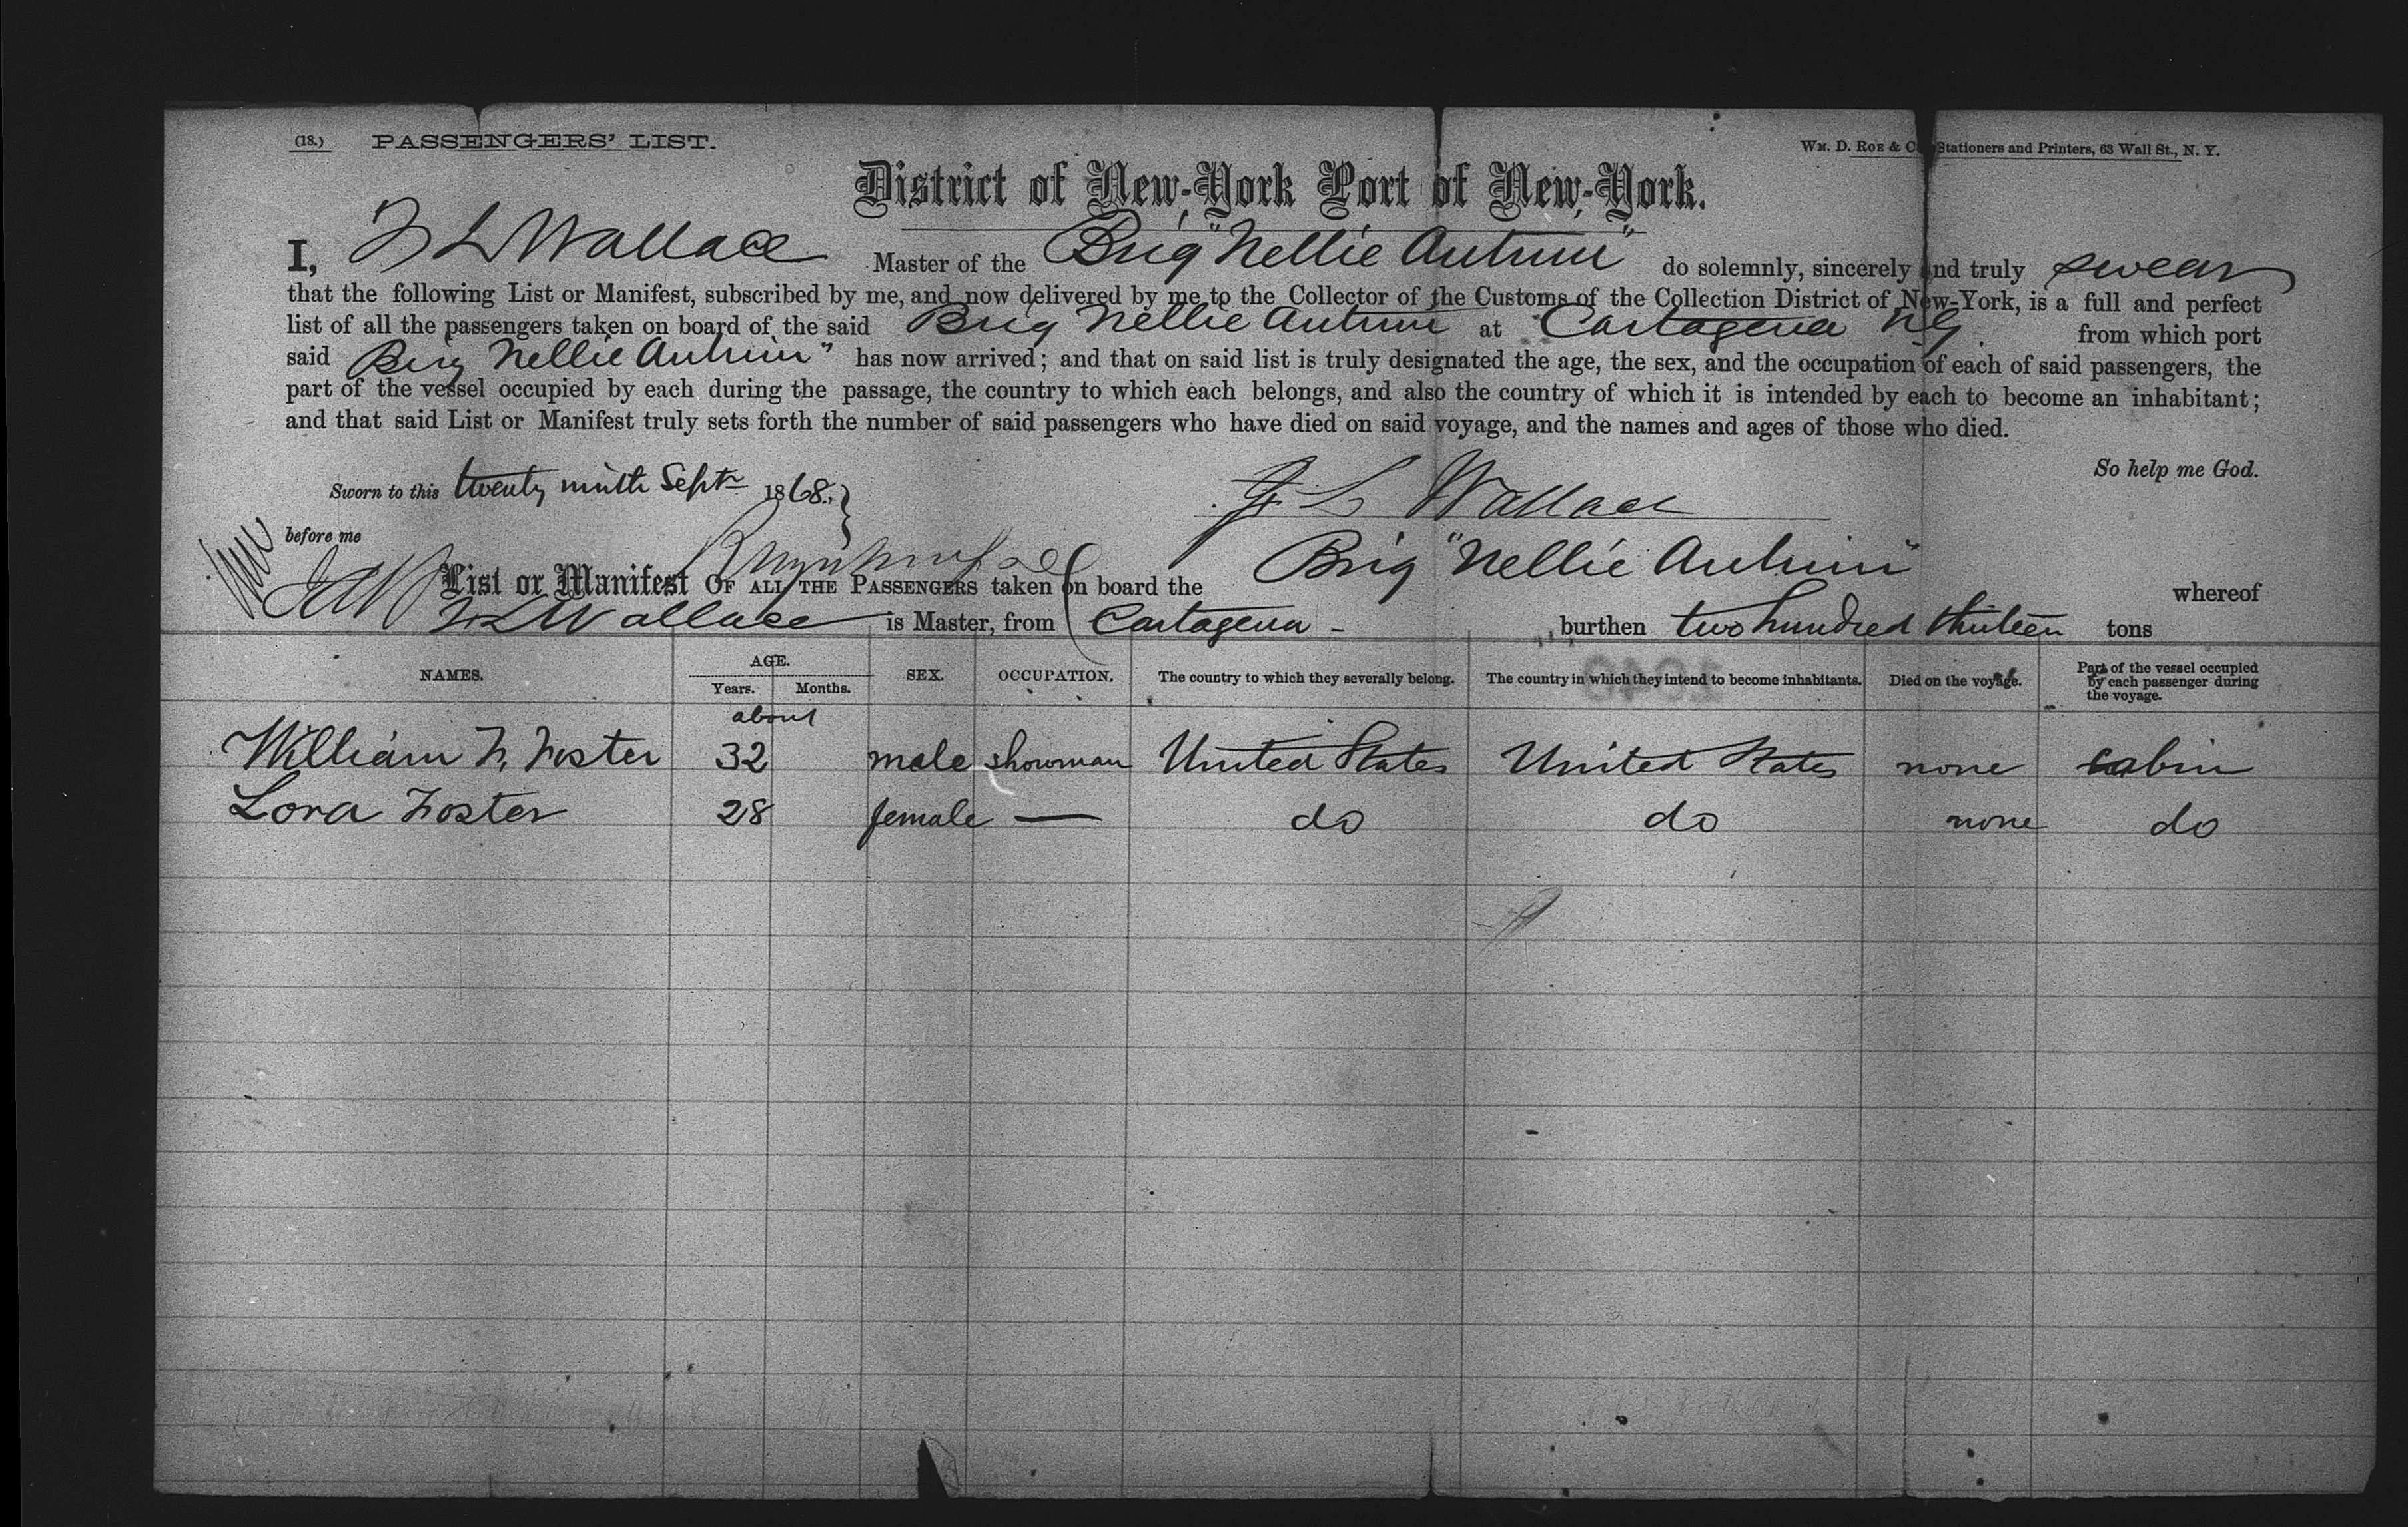 (18.) PASSENGERS' LIST. WM. D. ROE & C Stationers and Printers, 63 Wall St., N. Y.
District of New-York Port of New-York.
I, F L Wallace Master of the Brig "Nellie Antrim" do solemnly, sincerely and truly swear
that the following List or Manifest, subscribed by me, and now delivered by me to the Collector of the Customs of the Collection District of New-York, is a full and perfect
list of all the passengers taken on board of the said Brig Nellie Antrim at Cartagena NG from which port
said Brig Nellie Antrim" has now arrived; and that on said list is truly designated the age, the sex, and the occupation of each of said passengers, the
part of the vessel occupied by each during the passage, the country to which each belongs, and also the country of which it is intended by each to become an inhabitant;
and that said List or Manifest truly sets forth the number of said passengers who have died on said voyage, and the names and ages of those who died.
So help me God.
Sworn to this twenty ninth Sept 1868. F L Wallace
before me
List or Manifest OF ALL THE PASSENGERS taken on board the Brig "Nellie Antrim" whereof
F L Wallace is Master, from Cartagena - , burthen two hundred thirteen tons
NAMES. AGE. Years. Months. SEX. OCCUPATION. The country to which they severally belong. The country in which they intend to become inhabitants. Died on the voyage. Part of the vessel occupied by each passenger during the voyage.
about
William F. Foster 32 male showman United States United States none cabin
Lora Foster 28 female — do do none do